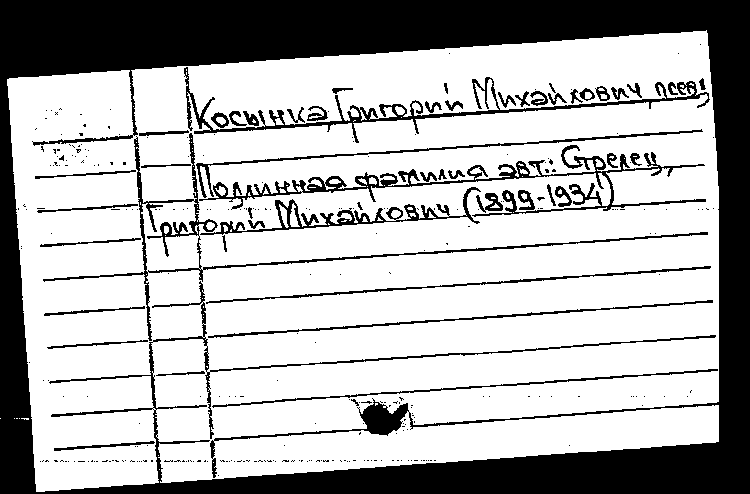 Косынка, Григорий Михайлович, псевд.
Подлинная фамилия авт.: Стрелец,
Григорий Михайлович (1899-1934)